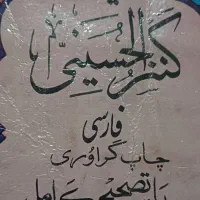 كنز الحسینی
فارسی
چاپ گراوری
با تصحیح کامل